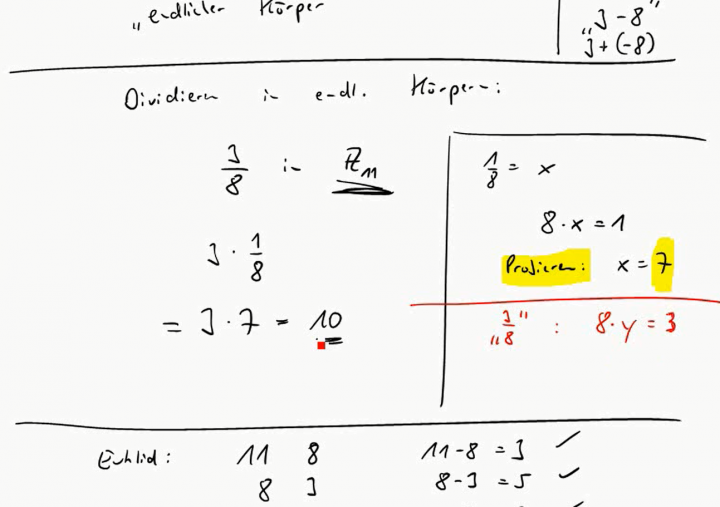 „endlicher Körper
„3 - 8"
3 + (-8)
Dividieren in endl. Körpern:
3/8 in ℤ₁₁
3 · 1/8
= 3 · 7 = 10
1/8 = x
8 · x = 1
Probieren: x = 7
„3/8" : 8 · y = 3
Euklid: 11 8 11 - 8 = 3 ✓
8 3 8 - 3 = 5 ✓